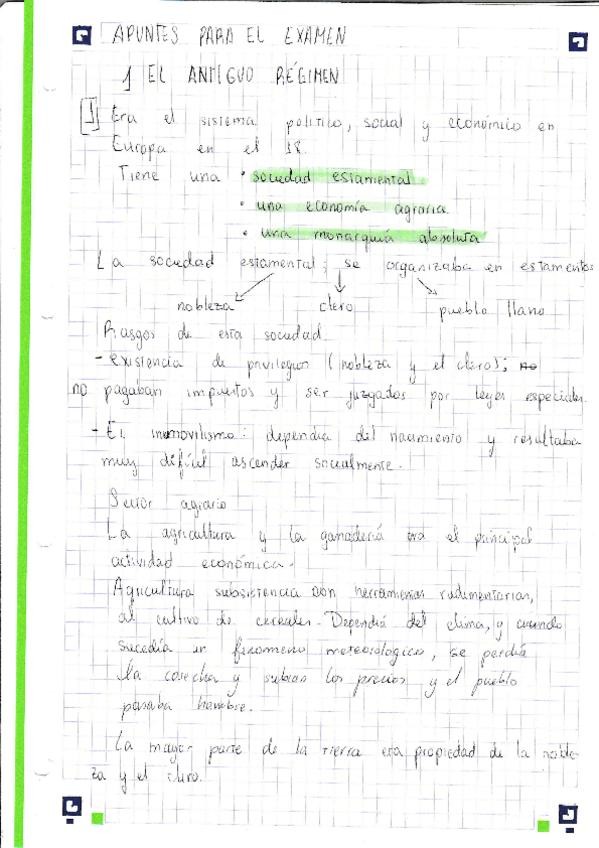 APUNTES PARA EL EXAMEN
1 EL ANTIGUO RÉGIMEN
1 Era el sistema politico, social y económico en
Europa en el 18.
Tiene una • sociedad estamental
• una economía agraria.
• una monarquía absoluta
La sociedad estamental; se organizaba en estamentos
nobleza clero pueblo llano
Rasgos de esta sociedad.
- existencia de privilegios (nobleza y el clero); no
no pagaban impuestos y ser juzgados por leyes especiales.
- El inmovilismo: dependía del nacimiento y resultaba
muy difícil ascender socialmente.
Sector agrario
La agricultura y la ganadería era el principal
actividad económica.
Agricultura subsistencia con herramientas rudimentarias,
al cultivo de cereales. Dependía del clima, y cuando
sucedía un fenomeno meteorologico, se perdía
la cosecha y subían los precios y el pueblo
pasaba hambre.
La mayor parte de la tierra era propiedad de la noble-
za y el clero.